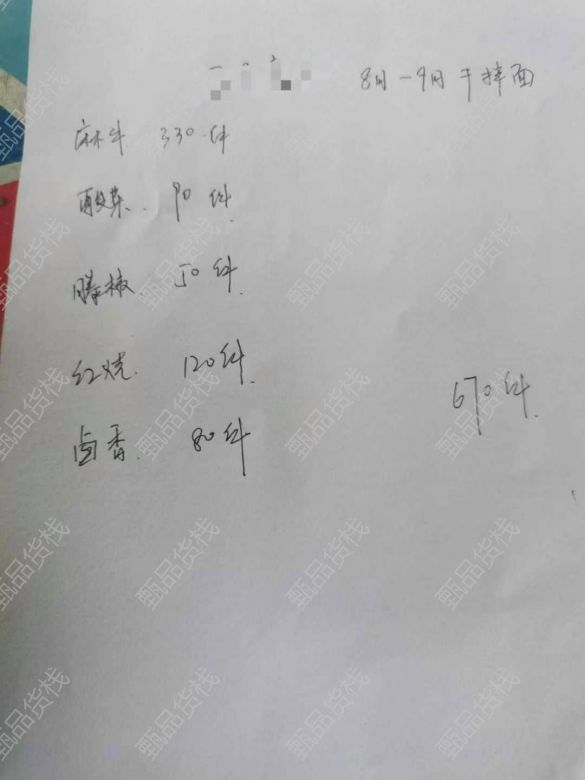 8月-9月干拌面
麻牛 330件
酸菜. 90件.
藤椒 50件.
红烧. 120件.
670件.
卤香. 80件
甄品货栈